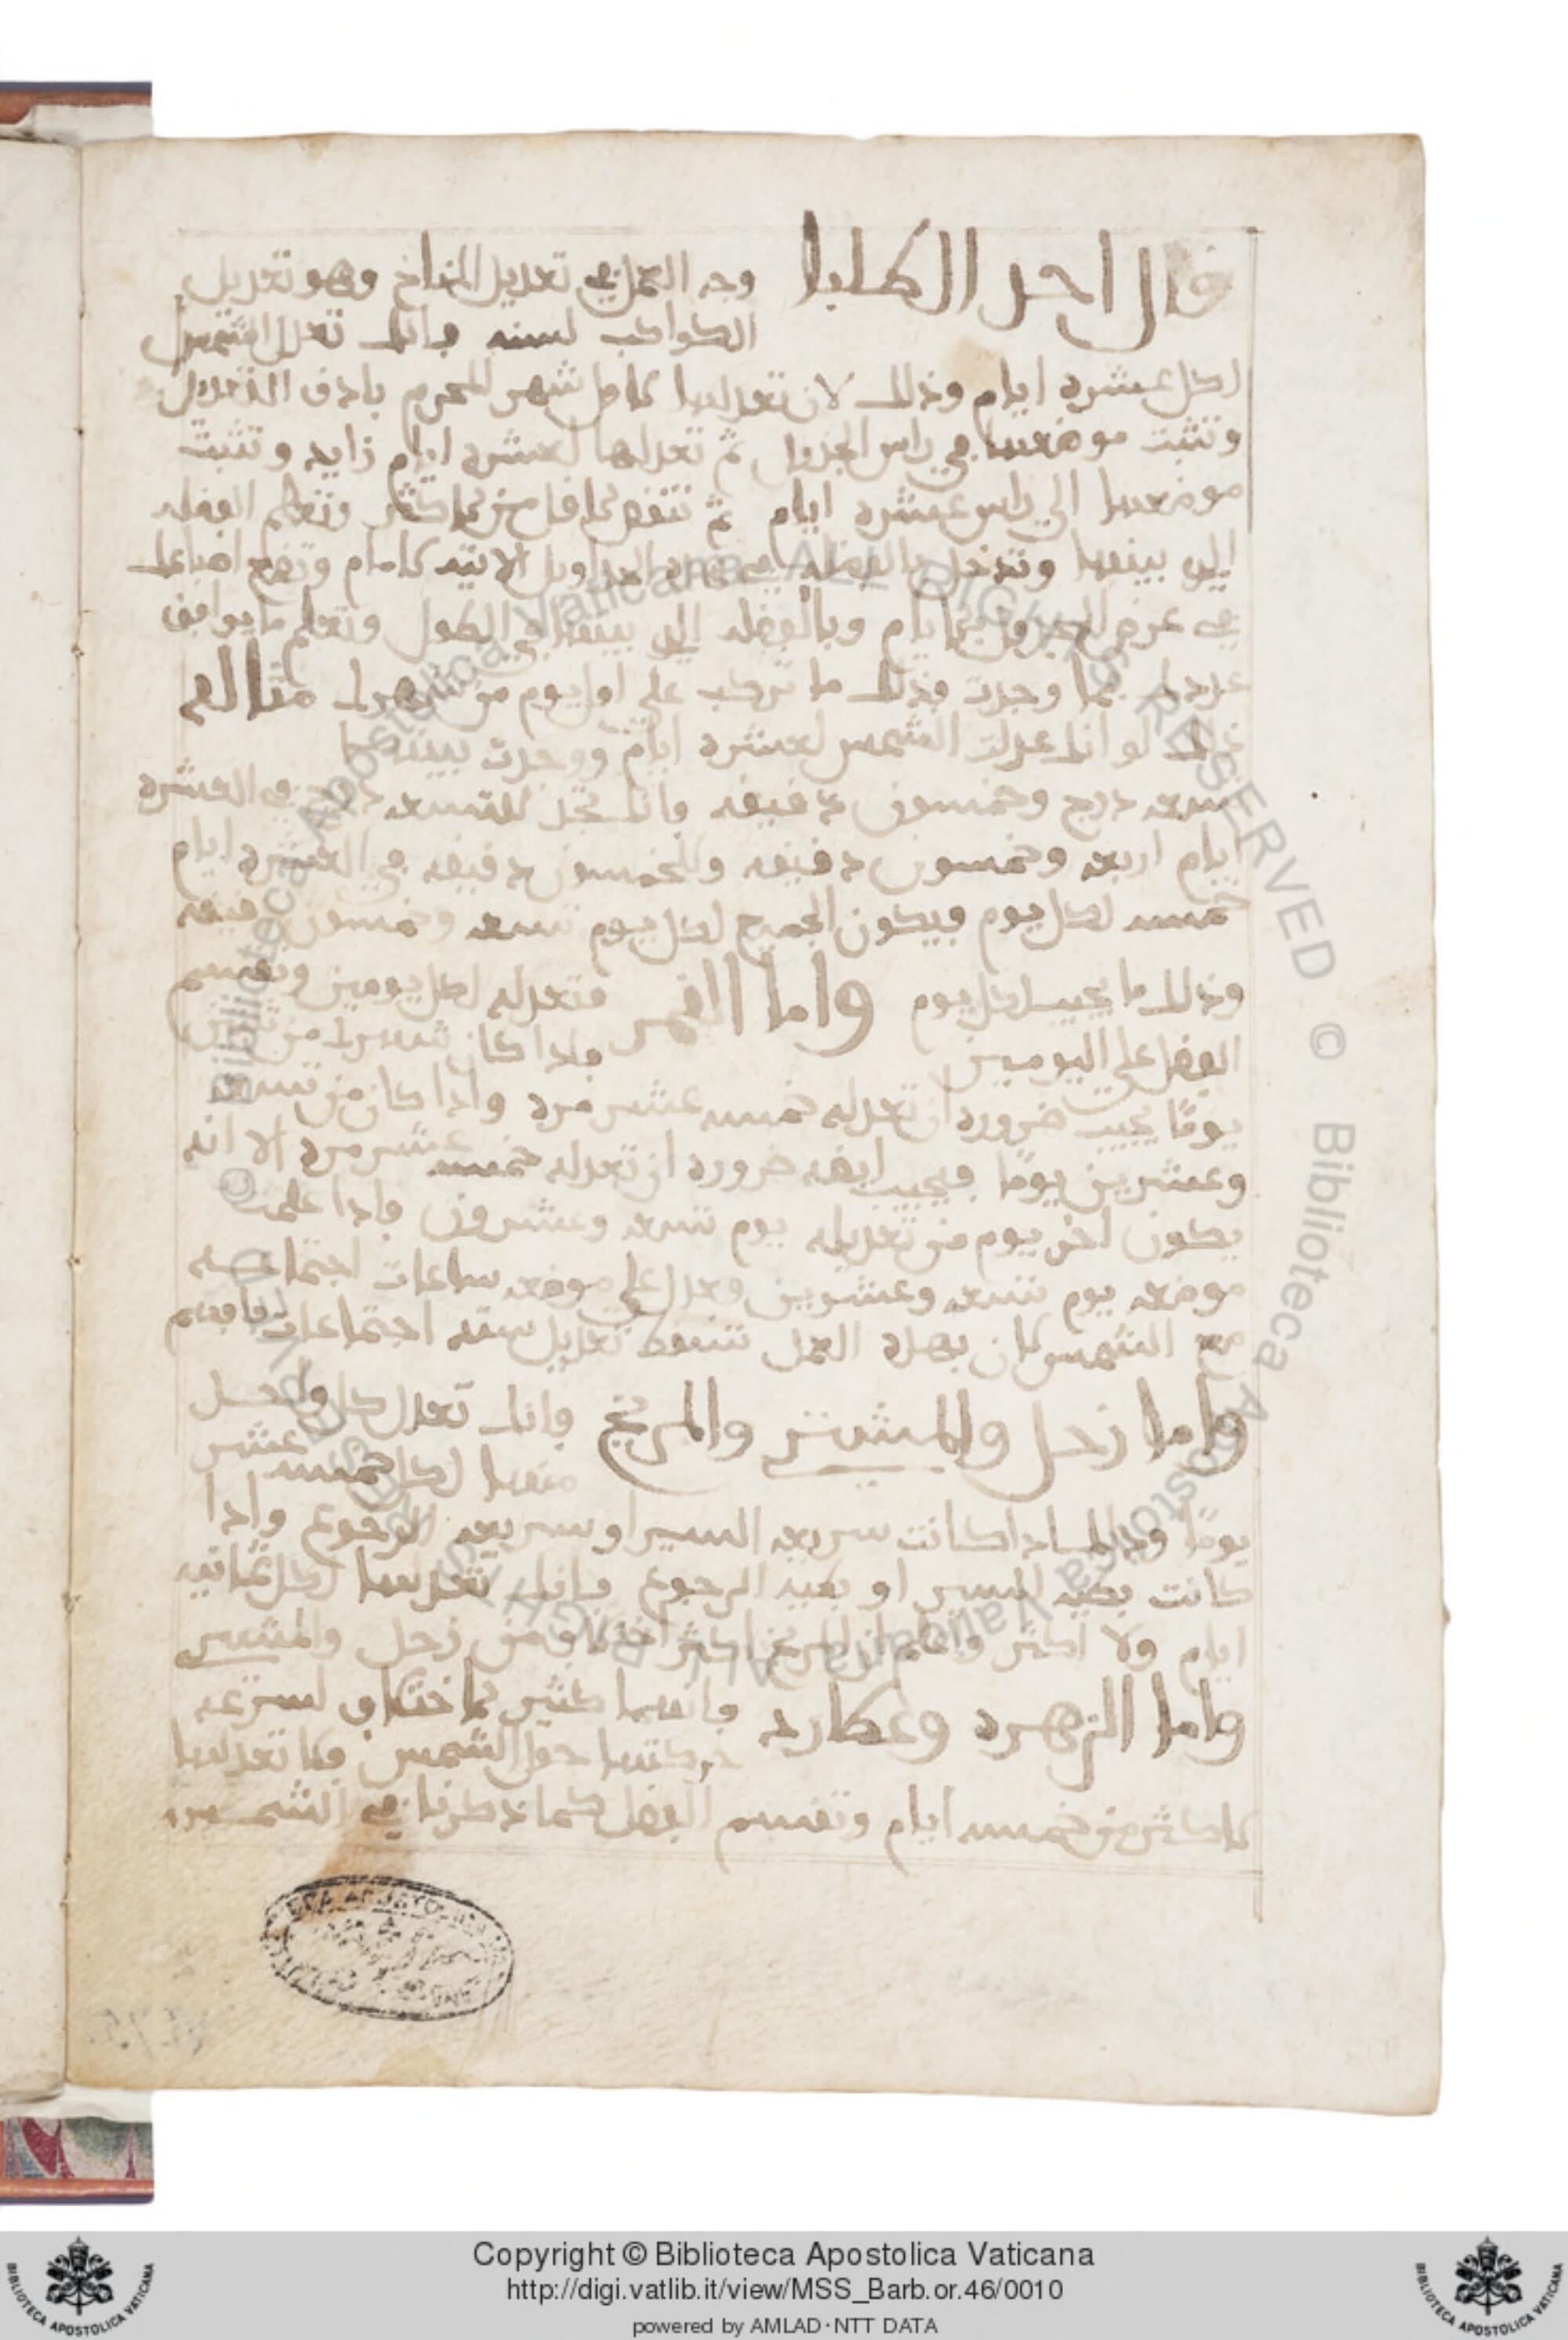 قال احد الطلبا وجه العمل في تعديل المناخ وهو تعديل
الكواكب لسنه فانك تعدل الشمس
لكل عشره ايام وذلك لان تعدلها لشهر المحرم بادق التعديل
وتثبت موضعها في راس الجدول ثم تعدلها لعشره ايام زايد وتثبت
موضعها الى راس عشره ايام ثم تنقص من وتعلم الفضله
التي بينهما وتدخل بالفضله في هذه الجداول الاتيه وتضع اصباعك
في عرض الجدول وبالفضله التي بينهما في الطول وتعلم ما يوافق
عددك فما وجدت فذلك ما تركب على اول يوم من شهرك مثاله
ذلك لو انك عدلت الشمس لعشره ايام ووجدت بينهما
تسعه درج وخمسون دقيقه فانك تجد للتسعه درج في العشره
ايام اربعه وخمسون دقيقه وللخمسون دقيقه في العشره ايام
خمسه لكل يوم فيكون الجميع لكل يوم تسعه وخمسون دقيقه
وذلك ما يجيب لكل يوم واما القمر فتعدله لكل يومين وتقسم
الفضل على اليومين فاذا كان شهرك من ثلاثين
يومًا يجيب ضروره ان تعدله خمسه عشر مره واذا كان من تسعه
وعشرين يومًا فيجيب ايضه ضروره ان تعدله خمسه عشر مره الا انه
يكون اخر يوم من تعديله يوم تسعه وعشرون فاذا علمت
موضعه يوم تسعه وعشرين وعدل على موضعه ساعات اجتماعه
مع الشمس كان بهذه العمل تسقط تعديل سته اجتماعات فافهم
واما زحل والمشتري والمريخ فانك تعدل كل واحد
منهما لكل خمسه عشر
يومًا وذلك اذا كانت سريعه السير او سريعه الرجوع واذا
كانت بطيه السير او بطيه الرجوع فانك تعدلها لكل ثمانيه
ايام ولا اكثر وتعلم ان المريخ اكثر اختلاف من زحل والمشتري
واما الزهره وعطارد فانهما كثير الاختلاف لسرعه
حركتها حول الشمس فلا تعدلها
لاكثر من خمسه ايام وتقسم الفضل كما ذكرنا في الشمس
Copyright © Biblioteca Apostolica Vaticana
http://digi.vatlib.it/view/MSS_Barb.or.46/0010
powered by AMLAD·NTT DATA